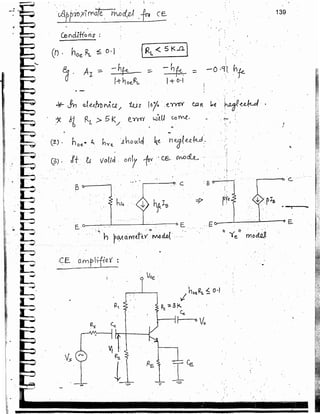 139
Approximate model for CE
Conditions :
(1). hoe RL ≤ 0.1 RL < 5KΩ
eg. AI = -hfe / 1+hoeRL = -hfe / 1+0.1 = -0.91 hfe
* In electronics, less 10% error can be neglected.
* If RL > 5K, error will come.
(2). hoe & hre should be neglected.
(3). It is valid only for CE mode.
B C B C
hie hfeIB ⇒ βre βIB
E E E E
"h parameter model" "re" model
CE amplifier :
VCC
hoeRL ≤ 0.1
R1 RL = 3K
Cc
Vo
Rs Cc
Vi
Vs R2
RE CE